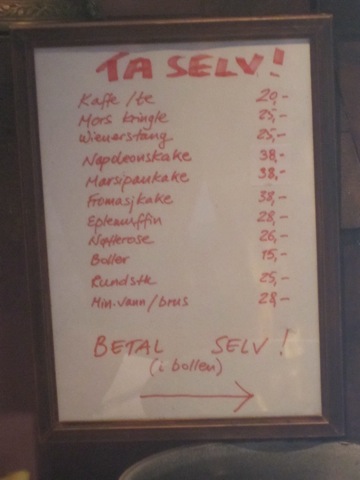 TA SELV!
Kaffe/te 20,-
Mors kringle 25,-
Wienerstang 25,-
Napoleonskake 38,-
Marsipankake 38,-
Fromasjkake 38,-
Eplemuffin 28,-
Nøtterose 26,-
Boller 15,-
Rundstk 25,-
Min.vann/brus 28,-
BETAL SELV!
(i bollen)